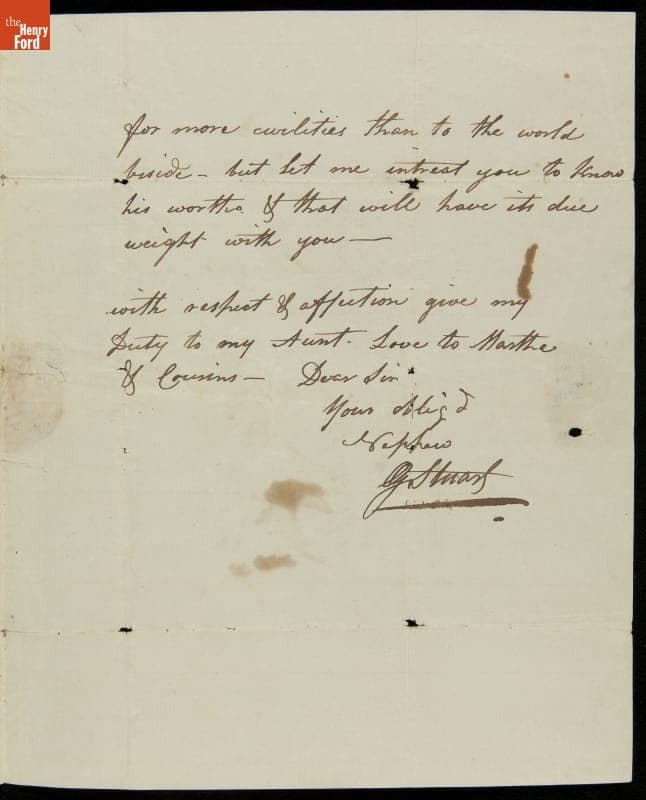 the
Henry
Ford
for more civilities than to the world
beside - but let me intreat you to know
his worth & that will have its due
weight with you —
with respect & affection give my
Duty to my Aunt. Love to Martha
& Cousins — Dear Sir
Your Oblig'd
Nephew
G. Stuart